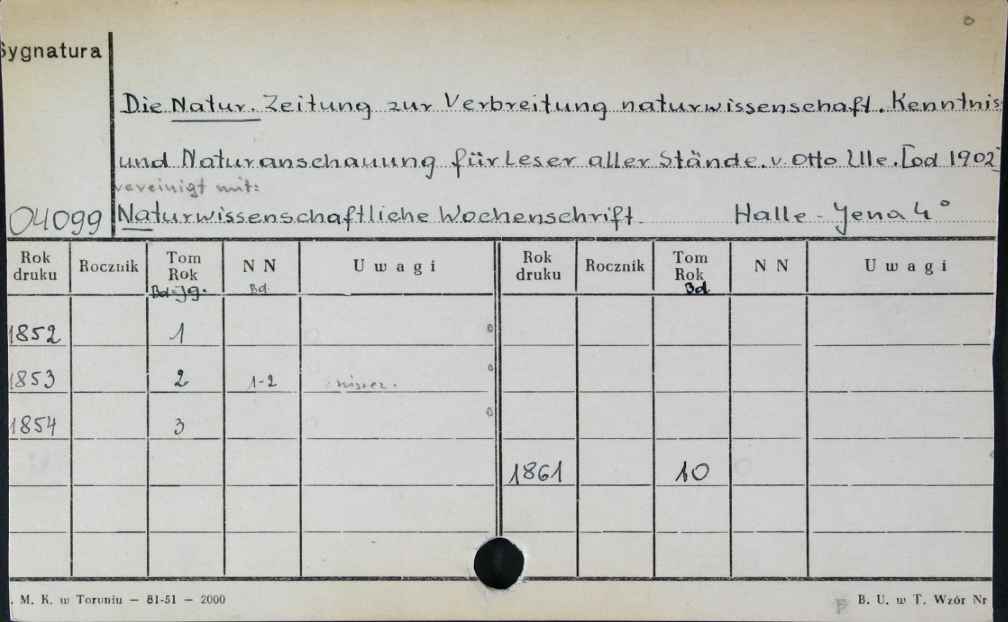 Sygnatura
Die Natur. Zeitung zur Verbreitung naturwissenschaft. Kenntnis
und Naturanschauung für Leser aller Stände. v. Otto Ule. [od 1902
vereinigt mit:
04099 Naturwissenschaftliche Wochenschrift. Halle - Jena 4°
Rok druku Rocznik Tom Rok NN Uwagi Rok druku Rocznik Tom Rok NN Uwagi
Bd. Jg. Bd. Bd
1852 1
1853 2 1-2
1854 3
1861 10
. M. K. w Toruniu — 81-51 — 2000 B. U. w T. Wzór Nr